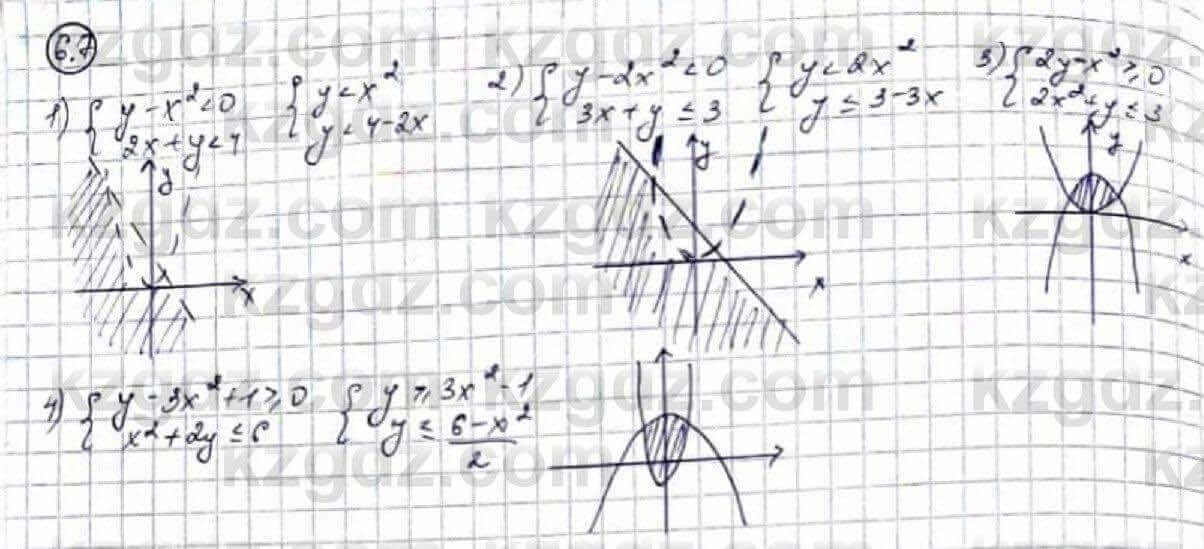 6.7
1) { y - x² < 0
2x + y < 4
{ y < x²
y < 4 - 2x
2) { y - 2x² < 0
3x + y ≤ 3
{ y < 2x²
y ≤ 3 - 3x
3) { 2y - x² ≥ 0
2x² + y ≤ 3
y
x
y
x
y
x
4) { y - 3x² + 1 ≥ 0
x² + 2y ≤ 6
{ y ≥ 3x² - 1
y ≤ (6 - x²)/2
kzgdz.com